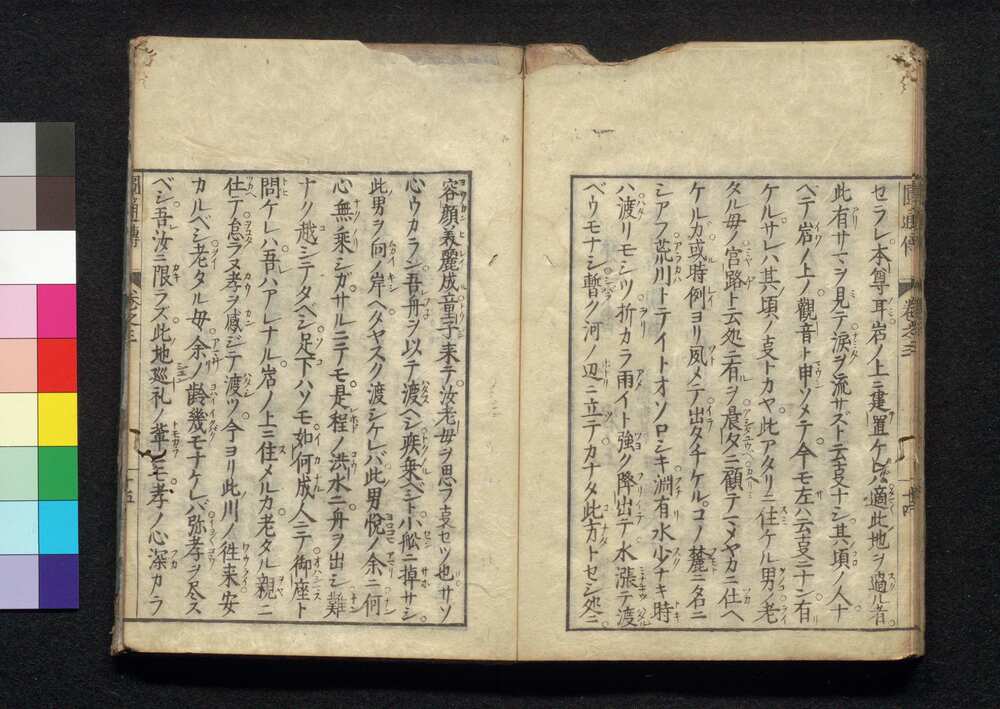 セラレ本尊耳岩ノ上ニ建置ケレ𪜈適此地ヲ過ル者
此有サマヲ見テ涙ヲ流サズト云支ナシ其頃ノ人十
ヘテ岩ノ上ノ觀音ト申ツメテ今モ左ハ云支ニナン有
ケルサレハ其頃ノ支トカヤ此アタリニ住ケル男ノ老
タル母ノ宮路ト云処ニ有ヲ晨夕ニ顧テマメヤカニ仕ヘ
ケルカ或時例ヨリ夙メテ出タチケルコノ麓ニ名ニ
シアフ荒川トテイトオソロシキ淵有水少ナキ時
ハ渡リモシツ折カラ雨イト強ク降出テ水漲テ渡
ベウモナシ暫ク河ノ辺ニ立テカナタ此方トセシ処ニ
容顔美麗成童子来テ汝老母ヲ思フ支セツ也サソ
心ウカラン吾舟ヲ以テ渡ヘシ疾乗ベシト小舩ニ掉サシ
此男ヲ向ノ岸ヘタヤスク渡シケレバ此男悦ノ余ニ何
心無乗シガサルニテモ是程ノ洪水ニ舟ヲ出シ難
ナク越シテタベシ足下ハソモ如何成人ニテ御座ト
問ケレハ吾ハアレナル岩ノ上ニ住メルカ老タル親ニ
仕テ怠ラヌ孝ヲ感ジテ渡ツ今ヨリ此川ノ徃来安
カルベシ老タル母余ノ齢幾モナケレバ弥孝ヲ尽ス
ベシ吾汝ニ限ラズ此地巡礼ノ輩ニモ孝ノ心深カラ
圓通傳
巻之三
十五